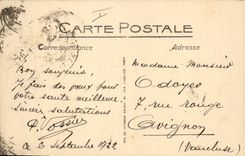 CARTE POSTALE
Correspondance
Adresse
Bon souvenir,
je fais des vœux pour
votre santé meilleure
Sincères salutations
le 3 Septembre 1922
Madame Monsieur
7 rue rouge
Avignon
(Vaucluse)